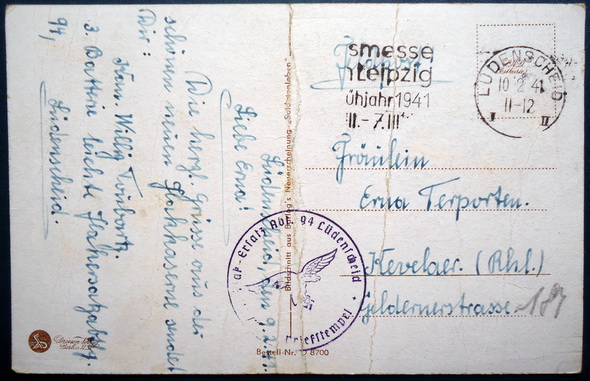 Lüdenscheid, den 9.2.41.
Liebe Erna!
Die herzl. Grüsse aus der
schönen neuen Flakkaserne sendet
Dir:
Hans Willy
3. Battrie leichte Flakersatzabtlg.
94,
Lüdenscheid.
smesse
Leipzig
ühjahr 1941
II.-7.III
LÜDENSCHEID
10.2.41
11-12
Fräulein
Erna Terporten.
Kevelaer. (Rhl.)
Geldernerstrasse
ak-Ersatz Abt. 94 Lüdenscheid
Briefstempel
Bildschnitt aus Verlag's Neuerscheinung „Soldatenleben"
Bestell-Nr. D 8700